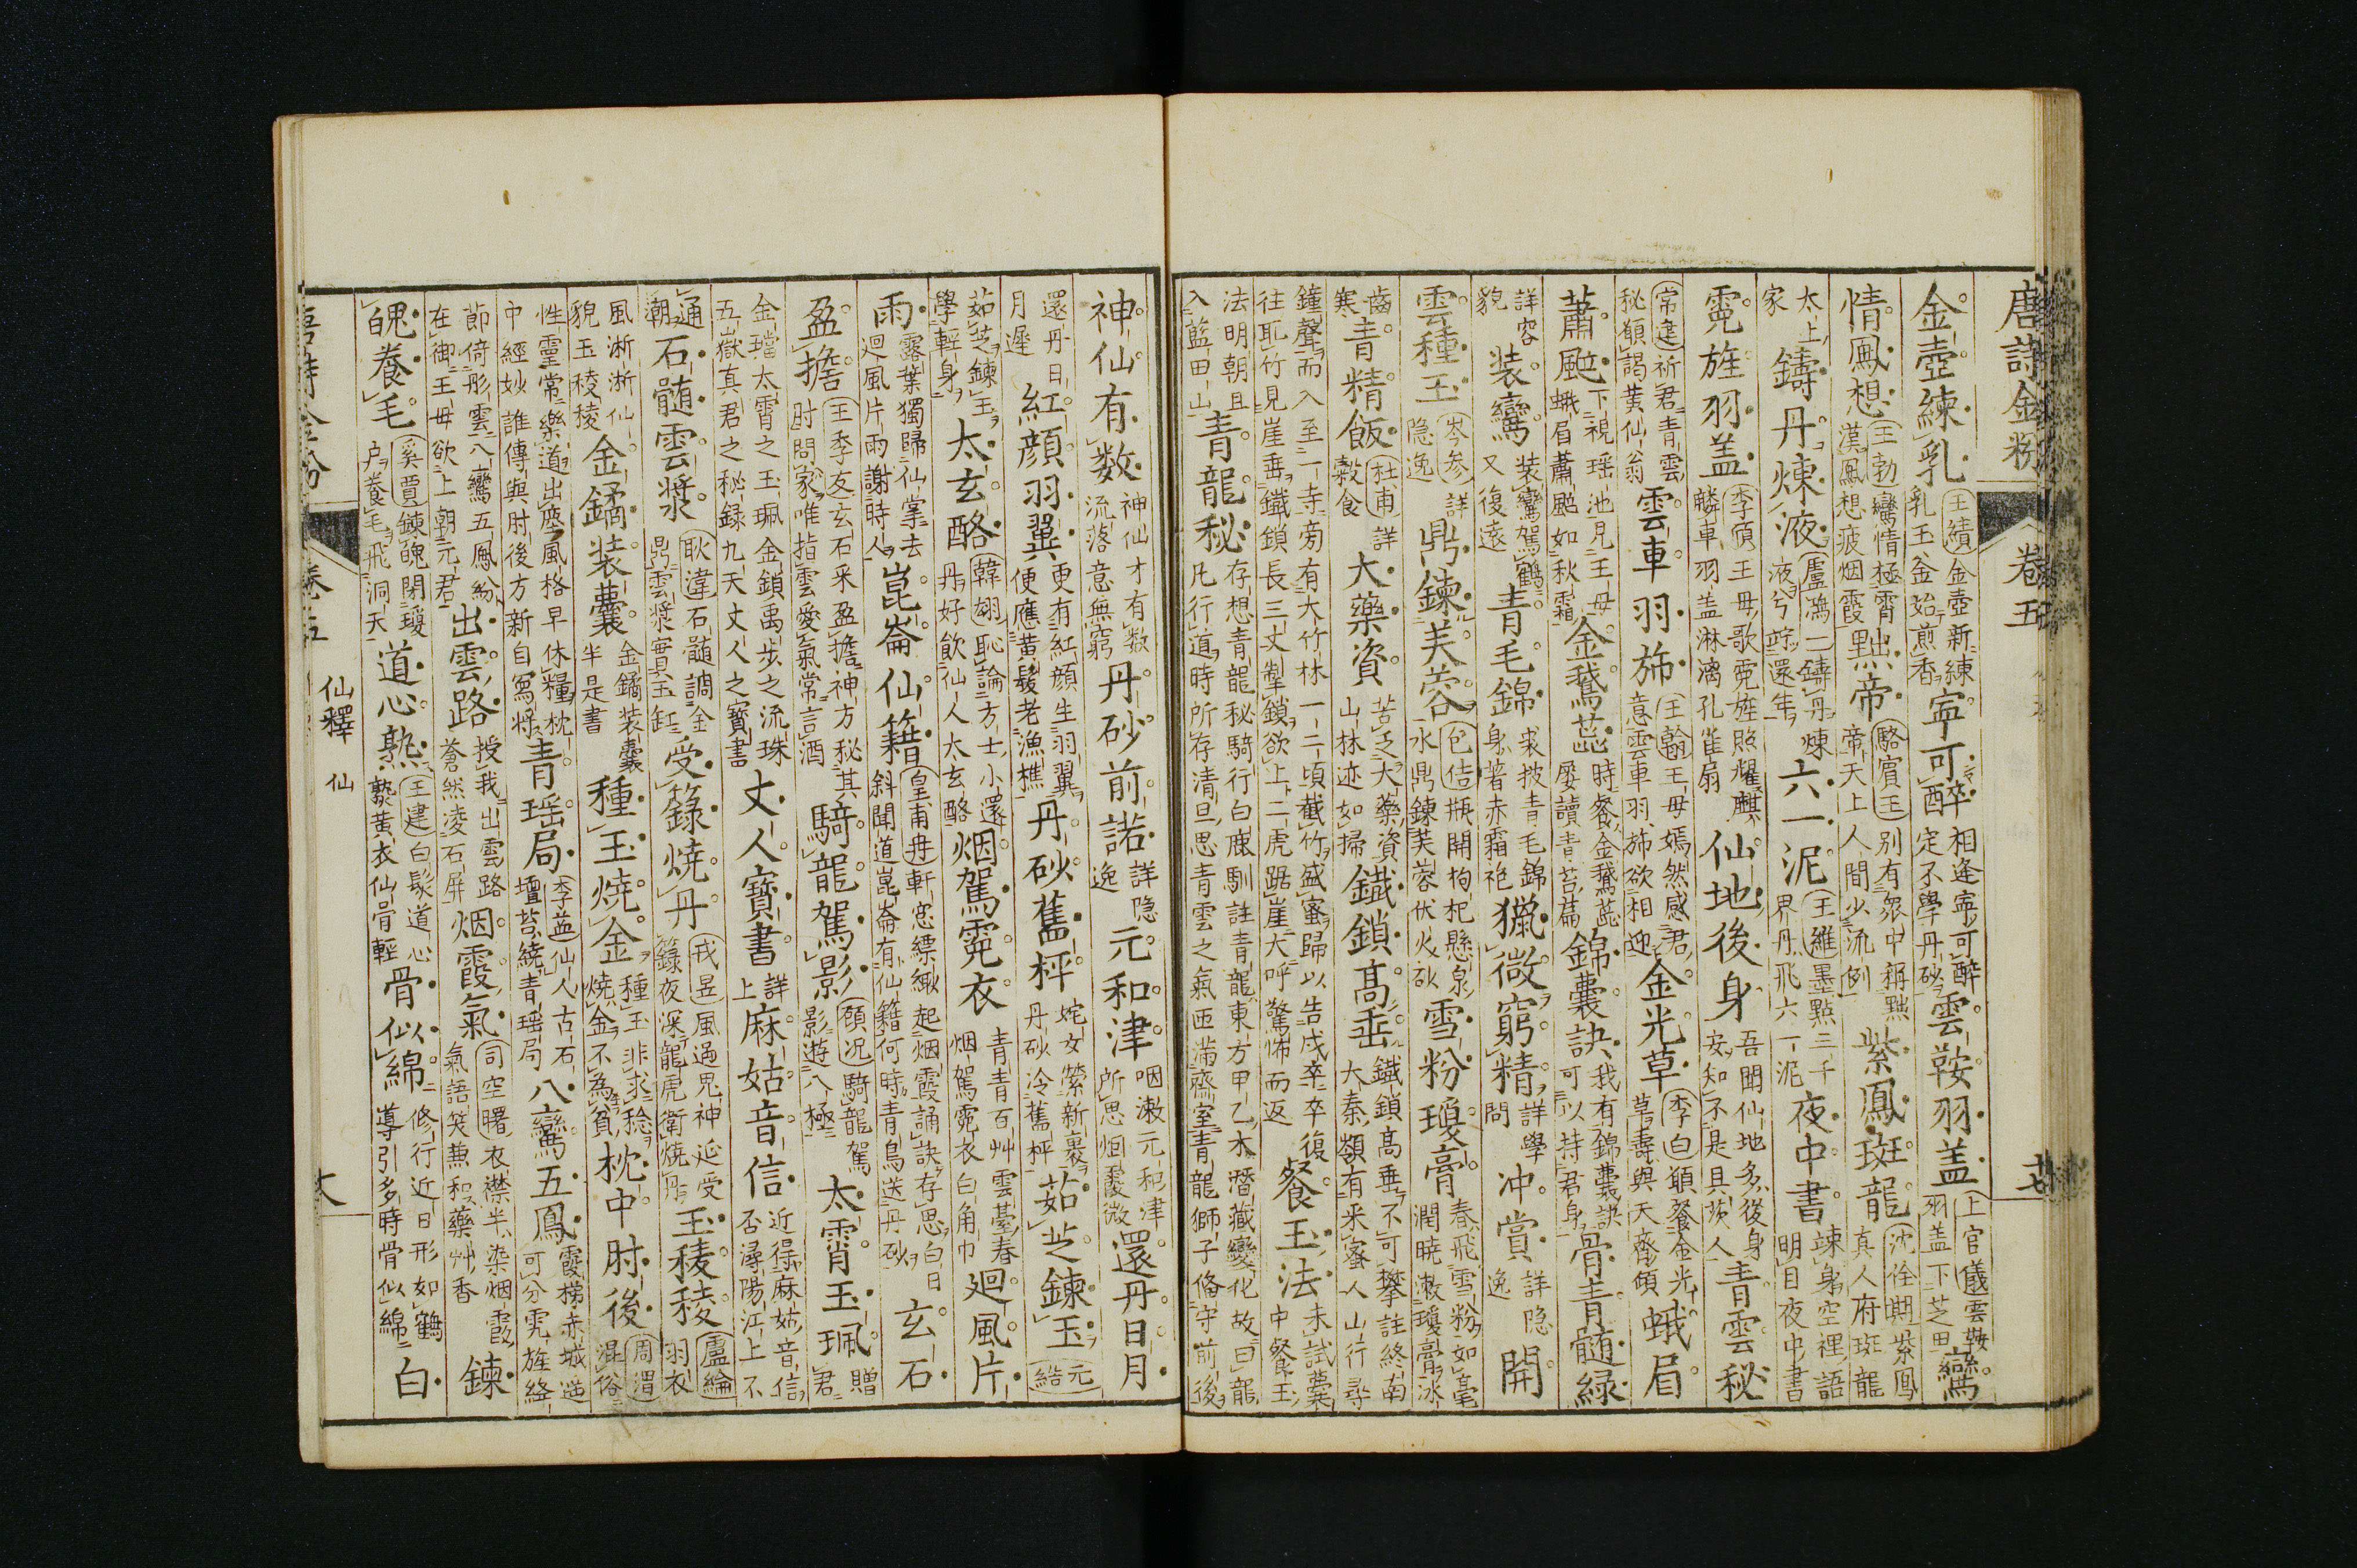 唐詩金粉 卷五
金壺練乳 王績金壺新練乳玉釜始煎香 寧可醉 相逢寧可醉定不學丹砂 雲鞍羽盖 上官儀雲鞍羽盖下芝田 鸞
情鳳想 王勃鸞情極霄漢鳳想疲烟霞 黜帝 駱賓王別有衆中稱黜帝天上人間少流例 紫鳳斑龍 沈佺期紫鳳真人府斑龍
太上家 鑄丹煉液 盧鴻一鑄丹煉液兮還年 六一泥 王維墨點三千界丹飛六一泥 夜中書 竦身空裡語明目夜中書
霓旌羽盖 李頎王母歌霓旌照耀麒麟車羽盖淋漓孔雀扇 仙地後身 吾聞仙地多後身安知不是具茨人 青雲秘
常建祈君青雲秘願謁黄仙翁 雲車羽斾 王翰王母嫣然感君意雲車羽斾欲相迎 金光草 李白願餐金光草壽與天齊傾 蛾眉
蕭颯 下視瑶池見王母蛾眉蕭颯如秋霜 金鵞蕋 時餐金鵞蕋屢讀青苔篇 錦囊訣 我有錦囊訣可以持君身 骨青髄緑
詳容貌 装鸞 装鸞駕鶴又復遠 青毛錦 裘披青毛錦身著赤霜袍 獵微窮精 詳學問 冲賞 詳隐逸 開
雲種玉 岑参詳隐逸 鼎鍊芙蓉 包佶瓶開枸杞懸泉水鼎鍊芙蓉伏火砂 雪粉瓊膏 春飛雪粉如毫潤暁漱瓊膏冰
齒寒 青精飯 杜甫詳穀食 大藥資 苦乏大藥資山林迹如掃 鐵鎖高垂 鐵鎖高垂不可攀註終南大秦嶺有采蜜人山行尋
鐘聲而入至一寺旁有大竹林一二頃截竹盛蜜歸以告戍卒卒復往耻竹見崖垂鐵鎖長三丈掣鎖欲上二虎踞崖大呼驚怖而返 餐玉法 未試囊中餐玉
法明朝且入藍田山 青龍秘 存想青龍秘騎行白鹿馴註青龍東方甲乙木潛藏變化故曰龍凡行道時所存清旦思青雲之氣匝滿齋室青龍獅子備守前後
神仙有数 神仙才有数流落意無窮 丹砂前諾 詳隐逸 元和津 咽漱元和津所思烟霞微 還丹日月
還丹日月遲 紅顔羽翼 更有紅顔生羽翼便應黄髪老漁樵 丹砂舊枰 姹女縈新裹丹砂冷舊枰 茹芝鍊玉 元結
茹芝鍊玉學輕身 太玄酪 韓翃耻論方士小還丹好飲仙人太玄酪 烟駕霓衣 青青百艸雲臺春烟駕霓衣白角巾 廻風片
雨 露葉獨歸仙掌去廻風片雨謝時人 崑崙仙籍 皇甫冉軒窓縹緲起烟霞誦訣存思白日斜聞道崑崙有仙籍何時青鳥送丹砂 玄石
盈擔 王季友玄石采盈擔神方秘其肘問家唯指雲愛氣常言酒 騎龍駕影 顧况騎龍駕影遊八極 太霄玉珮 贈君
金璫太霄之玉珮金鎖禹步之流珠五嶽真君之秘録九天丈人之寳書 丈人寳書 詳上 麻姑音信 近得麻姑音信否潯陽江上不
通潮 石髄雲漿 耿湋石髄調金鼎雲漿實玉缸 受籙焼丹 戎昱風過鬼神延受籙夜深龍虎衛焼丹 玉稜稜 盧綸羽衣
風淅淅仙貌玉稜稜 金鐍装囊 金鐍装囊半是書 種玉焼金 種玉非求稔焼金不為貧 枕中肘後 周渭混俗
性靈常樂道出塵風格早休糧枕中經妙誰傳與肘後方新自冩将 青瑶局 李益仙人古石壇苔繞青瑶局 八鸞五鳳 霞梯赤城遥可分霓旌絳
節倚彤雲八鸞五鳳紛在御王母欲上朝元君 出雲路 授我出雲路蒼然凌石屏 烟霞氣 司空曙衣襟半染烟霞氣語笑兼和藥艸香 鍊
魄養毛 奚賈鍊魄閉瓊户養毛飛洞天 道心熟 王建白髪道心熟黄衣仙骨輕 骨似綿 修行近日形如鶴導引多時骨似綿 白
唐詩金粉 卷五 仙釋 仙